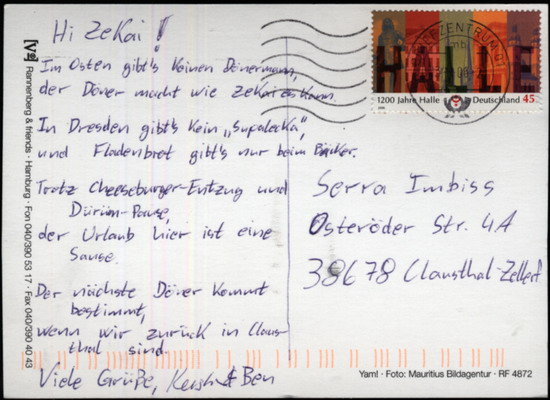 Hi Zekai!
Im Osten gibt's keinen Dönermann,
der Döner macht wie Zekai es kann.
In Dresden gibt's kein „Supalecka",
und Fladenbrot gibt's nur beim Bäcker.
Trotz Cheeseburger-Entzug und
Dürüm-Pause,
der Urlaub hier ist eine
Sause.
Der nächste Döner kommt
bestimmt,
wenn wir zurück in Claus-
thal sind.
Viele Grüße, & Ben
[Vs] Rannenberg & friends · Hamburg · Fon 040/390 53 17 · Fax 040/390 40 43
HALLE
1200 Jahre Halle Deutschland 45
BRIEFZENTRUM
Serra Imbiss
Osteröder Str. 4A
38678 Clausthal-Zellerf.
Yam! · Foto: Mauritius Bildagentur · RF 4872